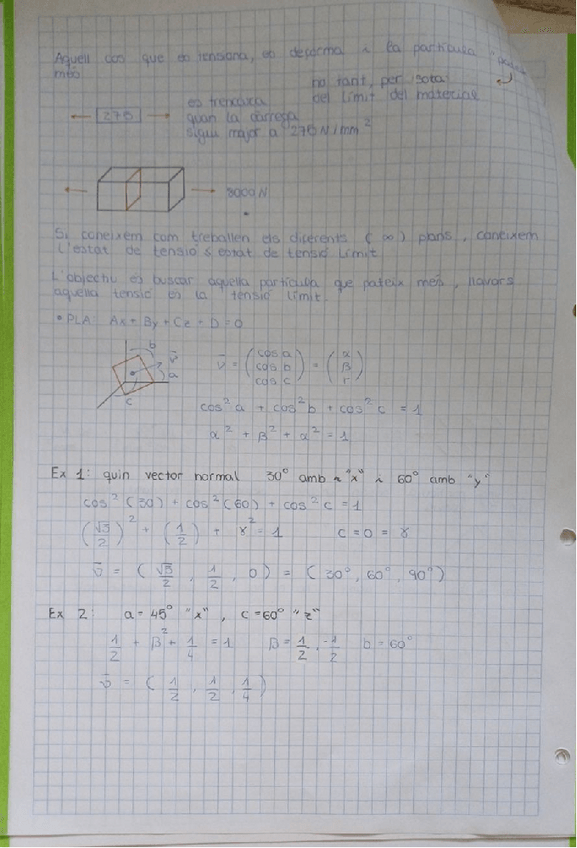 Aquell cos que es tensiona, es deforma i la partícula
més
no tant, per sota
del límit del material
275
es trencarà
quan la càrrega
sigui major a 275 N/mm²
8000 N
Si coneixem com treballen els diferents (∞) plans, coneixem
L'estat de tensió & estat de tensió límit.
L'objectiu és buscar aquella partícula que pateix més, llavors
aquella tensió és la tensió límit.
• PLA: Ax + By + Cz + D = 0
b
v̄
a
c
v̄ = (cos a, cos b, cos c) = (α, β, r)
cos² a + cos² b + cos² c = 1
α² + β² + α² = 1
Ex 1: quin vector normal 30° amb "x" i 60° amb "y"
cos² (30) + cos² (60) + cos² c = 1
(√3/2)² + (1/2) + γ² = 1 c = 0 = γ
v̄ = (√3/2, 1/2, 0) = (30°, 60°, 90°)
Ex 2: a = 45° "x", c = 60° "z"
1/2 + β² + 1/4 = 1 β = 1/2, -1/2 b = 60°
v̄ = (1/2, 1/2, 1/4)